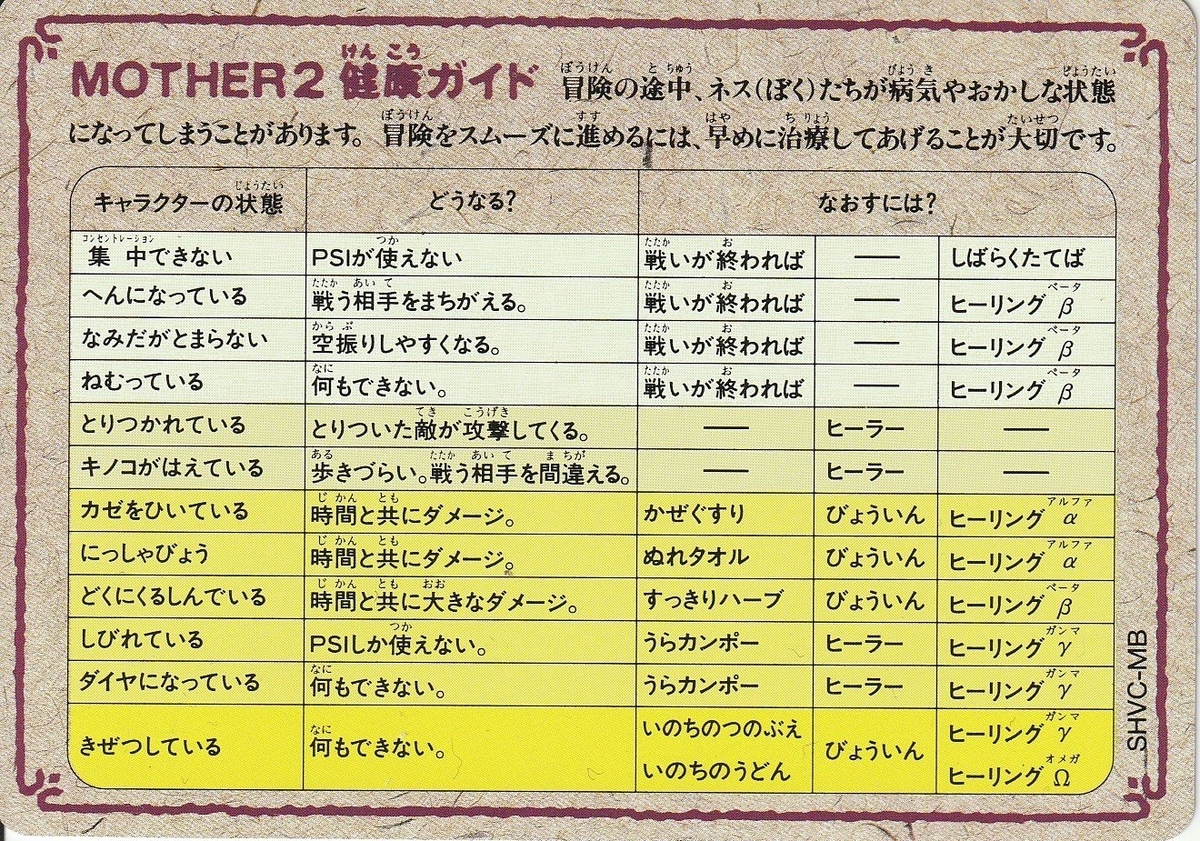 MOTHER2 健康ガイド 冒険の途中、ネス(ぼく)たちが病気やおかしな状態
になってしまうことがあります。冒険をスムーズに進めるには、早めに治療してあげることが大切です。
キャラクターの状態 どうなる? なおすには?
集中できない PSIが使えない 戦いが終われば ― しばらくたてば
へんになっている 戦う相手をまちがえる。 戦いが終われば ― ヒーリングβ
なみだがとまらない 空振りしやすくなる。 戦いが終われば ― ヒーリングβ
ねむっている 何もできない。 戦いが終われば ― ヒーリングβ
とりつかれている とりついた敵が攻撃してくる。 ― ヒーラー ―
キノコがはえている 歩きづらい。戦う相手を間違える。 ― ヒーラー ―
カゼをひいている 時間と共にダメージ。 かぜぐすり びょういん ヒーリングα
にっしゃびょう 時間と共にダメージ。 ぬれタオル びょういん ヒーリングα
どくにくるしんでいる 時間と共に大きなダメージ。 すっきりハーブ びょういん ヒーリングβ
しびれている PSIしか使えない。 うらカンポー ヒーラー ヒーリングγ
ダイヤになっている 何もできない。 うらカンポー ヒーラー ヒーリングγ
きぜつしている 何もできない。 いのちのつのぶえ びょういん ヒーリングγ
いのちのうどん ヒーリングΩ
SHVC-MB